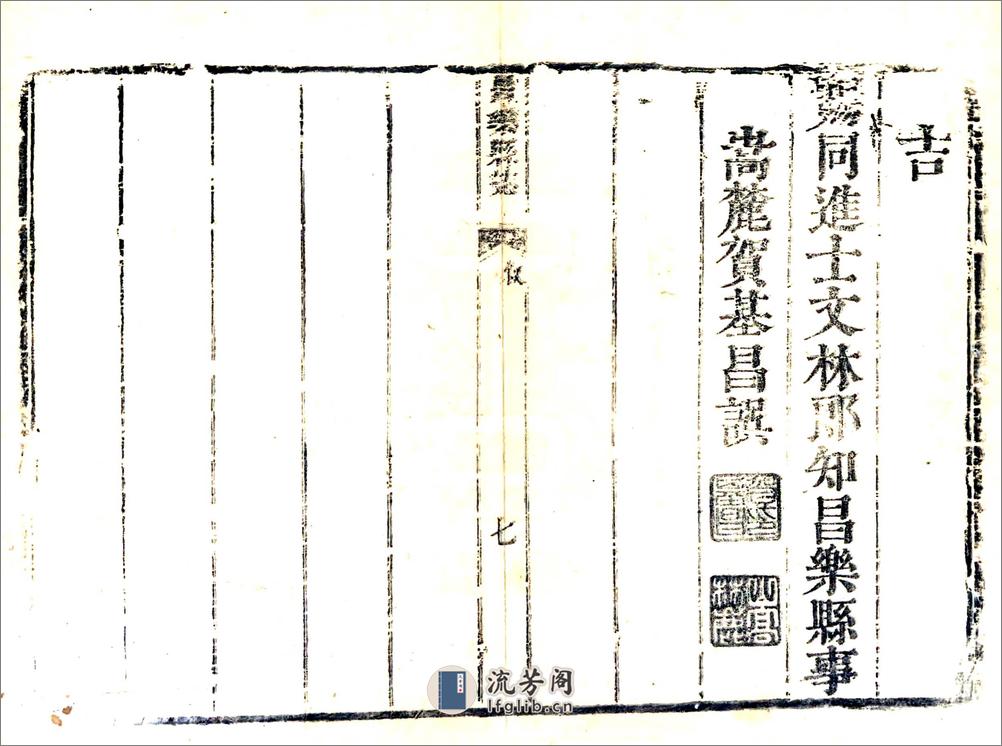 吉
賜同進士文林郎知昌樂縣事
嵩麓賀基昌譔
昌樂縣志
叙
七
流芳阁
lfglib.cn